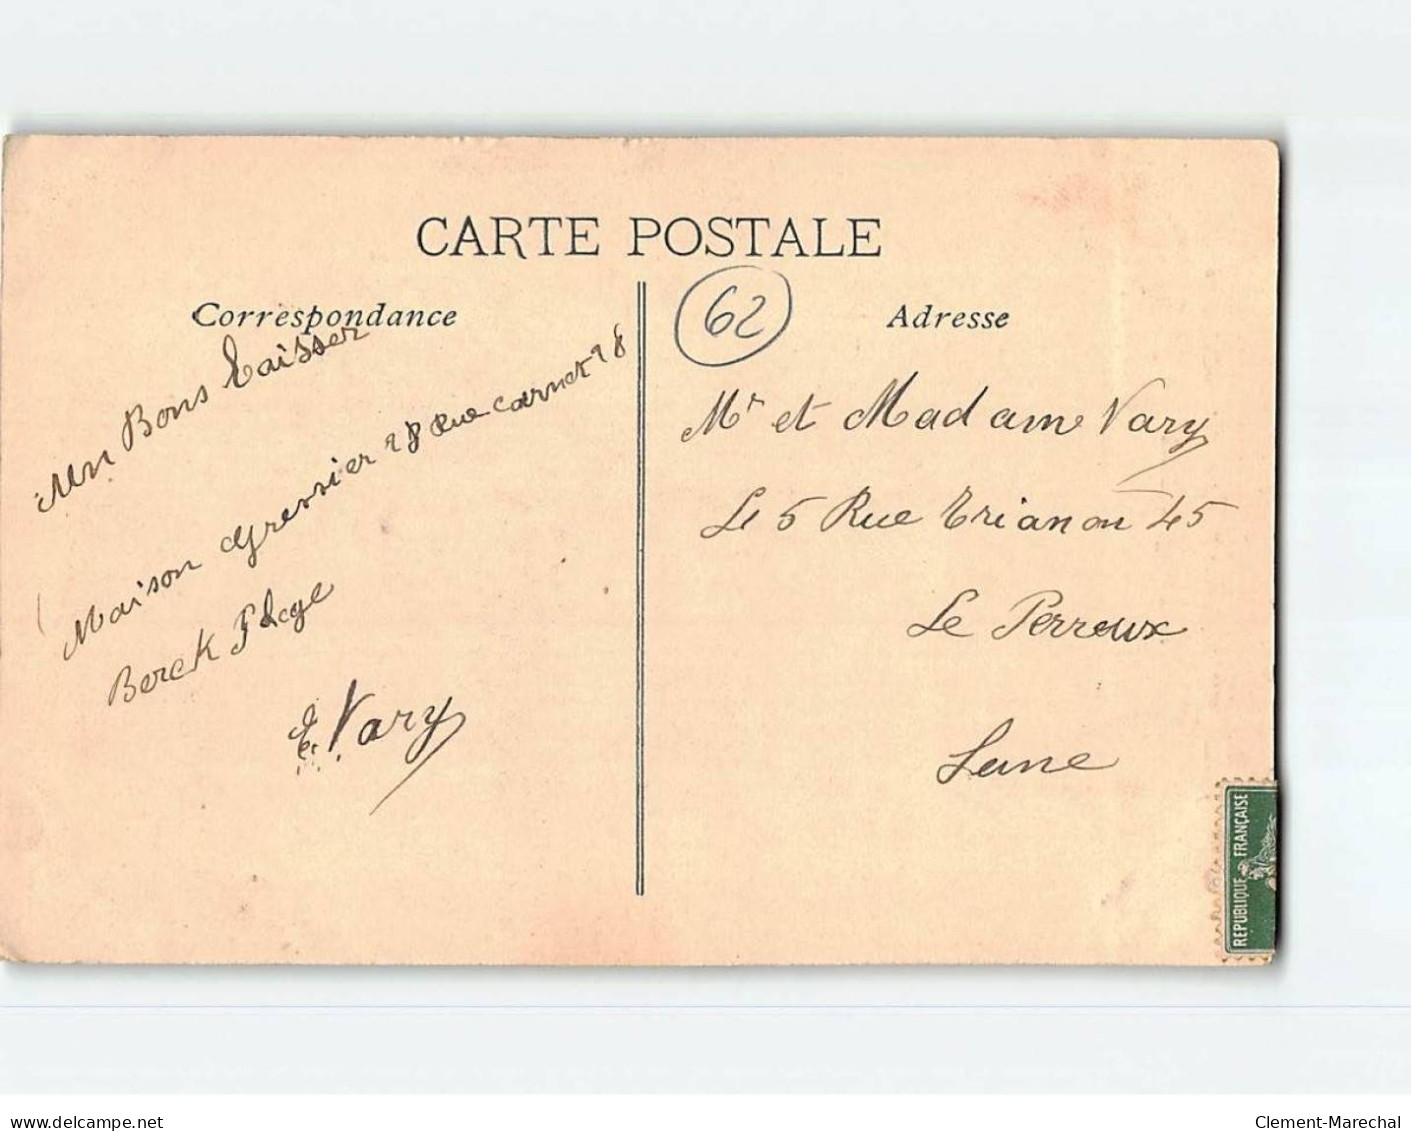 CARTE POSTALE
Correspondance
62
Adresse
Un Bons Baisser
Maison Gressier 28 Rue Carnet 28
Berck Plage
E. Vary
Mr et Madame Vary
Le 5 Rue Trianon 45
Le Perreux
Seine
REPUBLIQUE FRANÇAISE
www.delcampe.net
Clement-Marechal